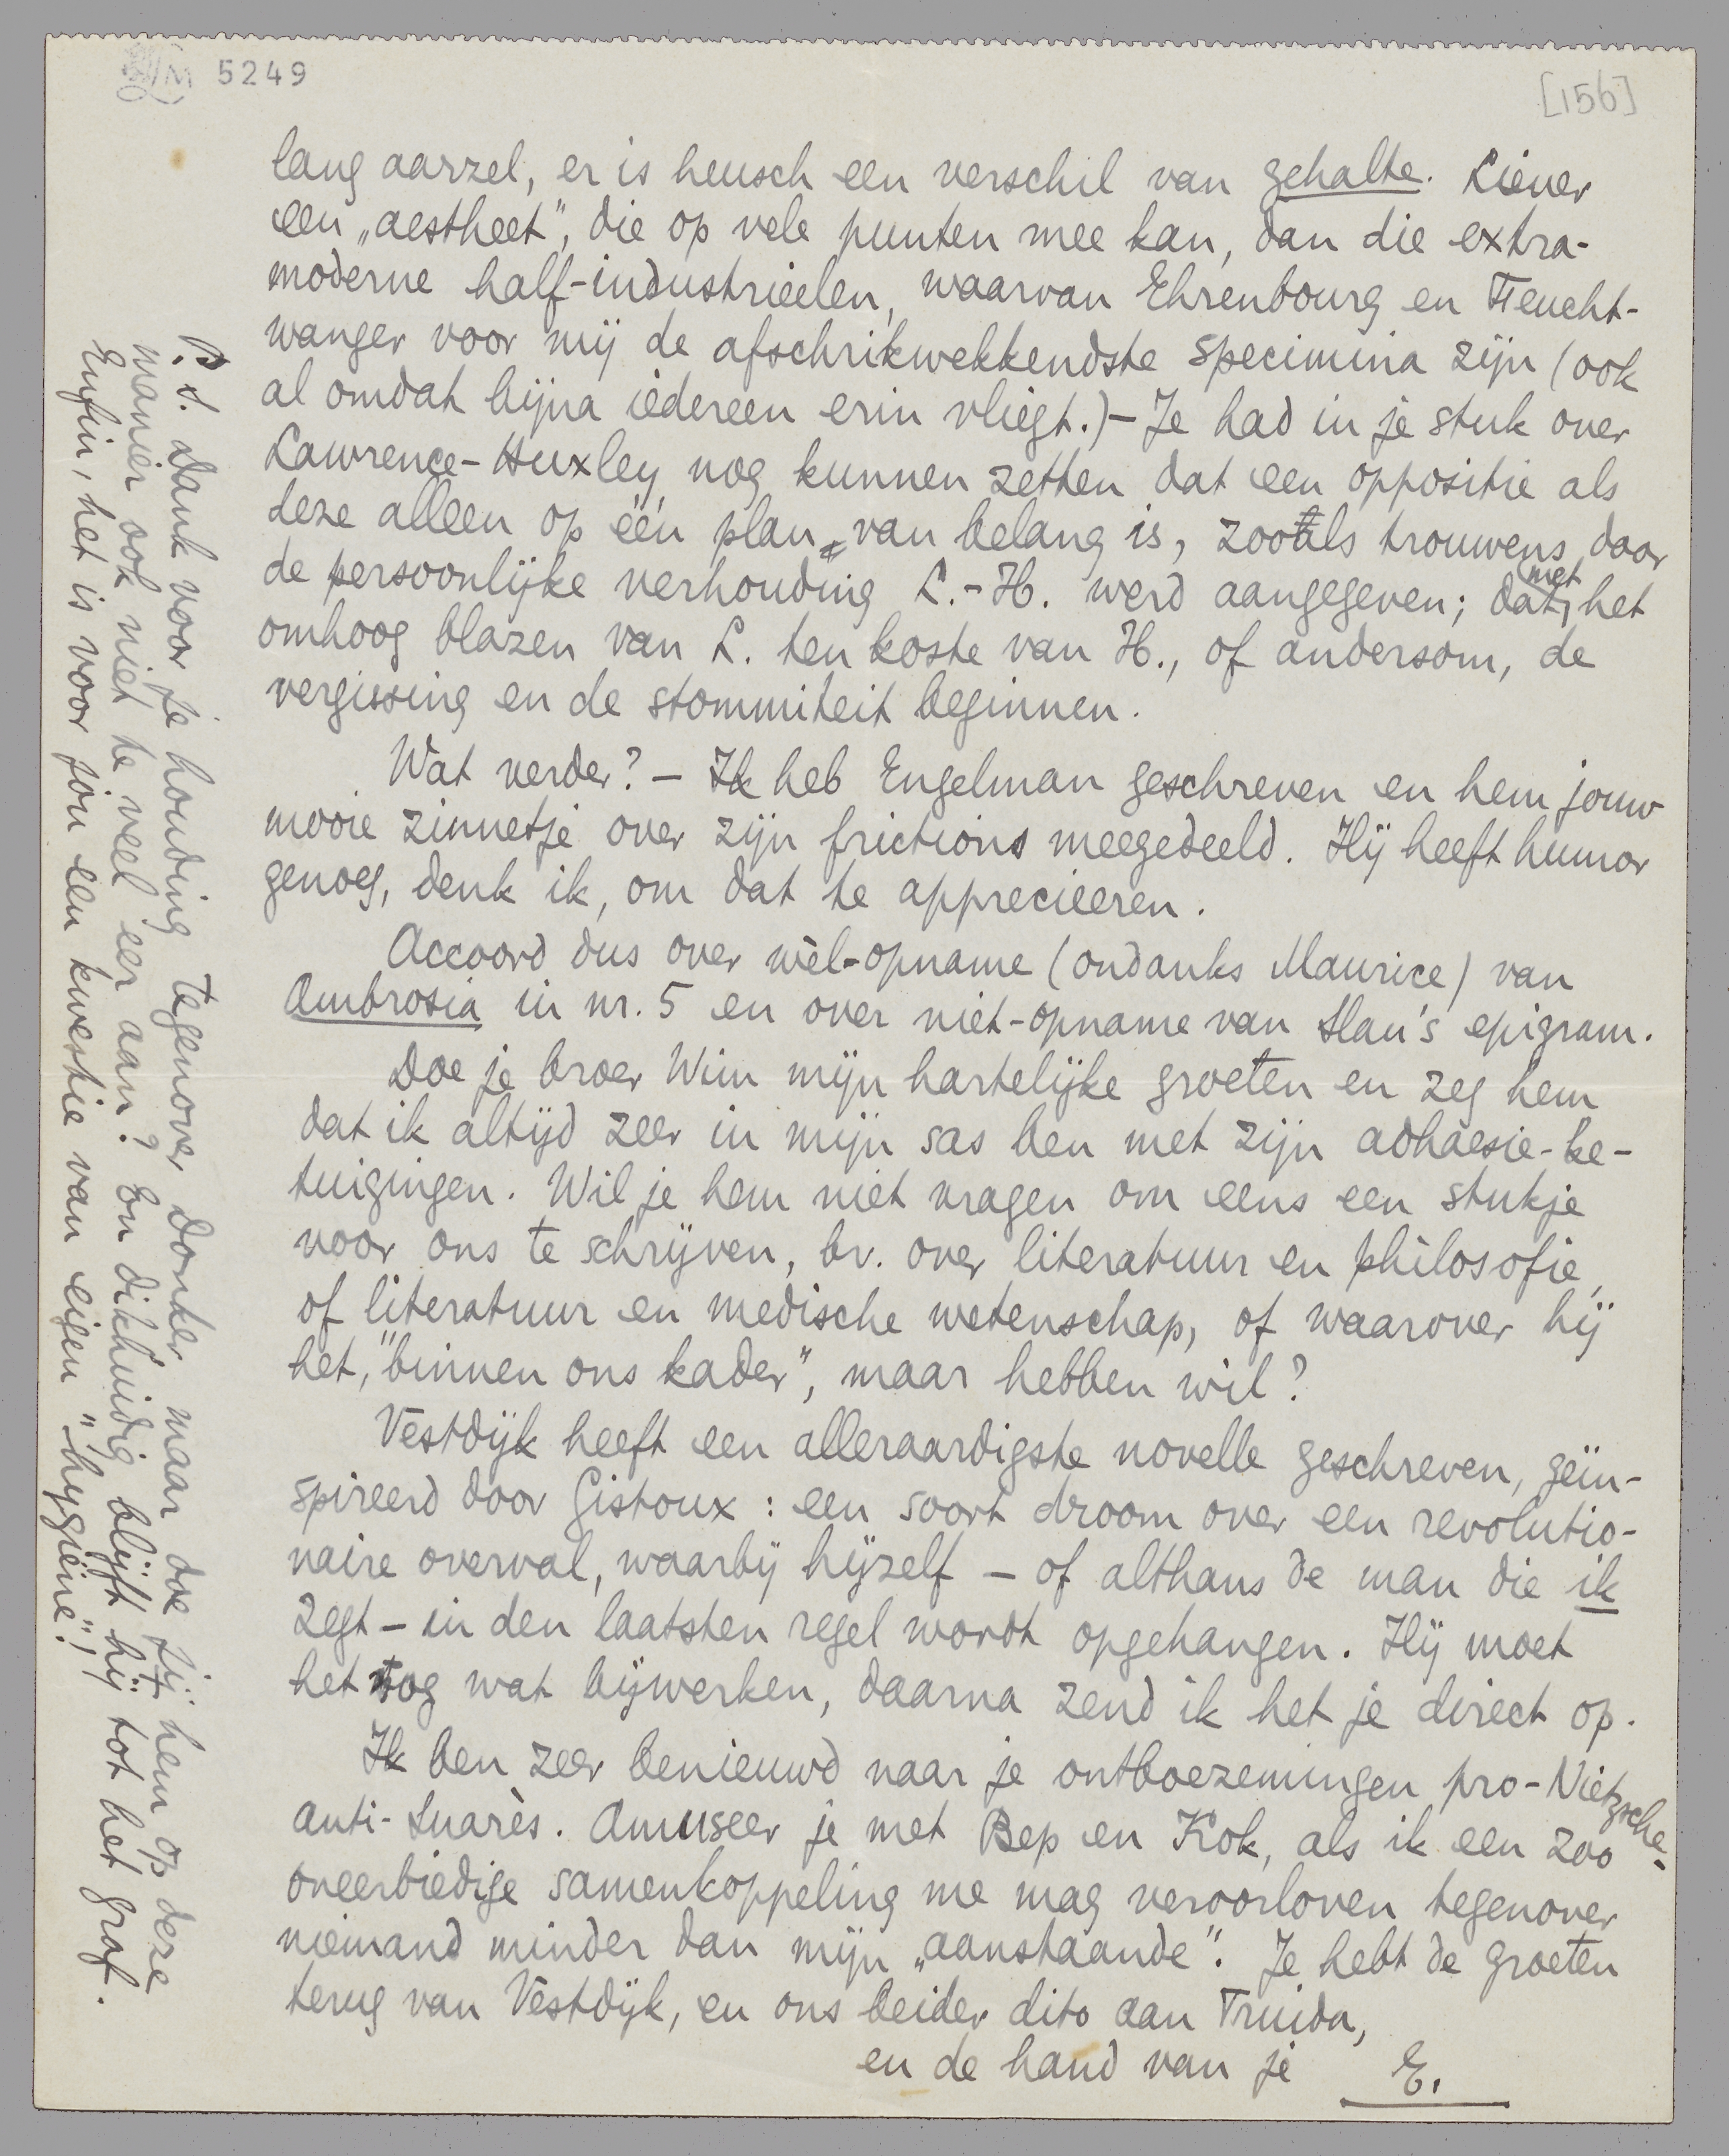 LM 5249
[156]
lang aarzel, er is heusch een verschil van gehalte. Liever
een „aestheet”, die op vele punten mee kan, dan die extra-
moderne half-industrieelen, waarvan Ehrenbourg en Feucht-
wanger voor mij de afschrikwekkendste specimina zijn (ook
al omdat bijna iedereen erin vliegt.) — Je had in je stuk over
Lawrence-Huxley nog kunnen zetten dat een oppositie als
deze alleen op één plan van belang is, zooals trouwens door
de persoonlijke verhouding L.-H. werd aangegeven; dat met het
omhoog blazen van L. ten koste van H., of andersom, de
vergissing en de stommiteit beginnen.
Wat verder? — Ik heb Engelman geschreven en hem jouw
mooie zinnetje over zijn frictions meegedeeld. Hij heeft humor
genoeg, denk ik, om dat te apprecieeren.
Accoord dus over wèl-opname (ondanks Maurice) van
Ambrosia in nr. 5 en over niet-opname van Han's epigram.
Doe je broer Wim mijn hartelijke groeten en zeg hem
dat ik altijd zeer in mijn sas ben met zijn adhaesie-be-
tuigingen. Wil je hem niet vragen om eens een stukje
voor ons te schrijven, bv. over literatuur en philosofie,
of literatuur en medische wetenschap, of waarover hij
het, "binnen ons kader", maar hebben wil?
Vestdijk heeft een alleraardigste novelle geschreven, geïn-
spireerd door Gistoux: een soort droom over een revolutio-
naire overval, waarbij hijzelf — of althans de man die ik
zegt — in den laatsten regel wordt opgehangen. Hij moet
het nog wat bijwerken, daarna zend ik het je direct op.
Ik ben zeer benieuwd naar je ontboezemingen pro-Nietzsche-
anti-Suarès. Amuseer je met Bep en Kok, als ik een zoo
oneerbiedige samenkoppeling me mag veroorloven tegenover
niemand minder dan mijn „aanstaande”. Je hebt de groeten
terug van Vestdijk, en ons beider dito aan Truida,
en de hand van je E.
P.S. Dank voor je houding tegenover Donker maar doe jij hem op deze
manier ook niet te veel eer aan? En dikhuidig blijft hij tot het graf.
Enfin, het is voor jou een kwestie van eigen "hygiëne",